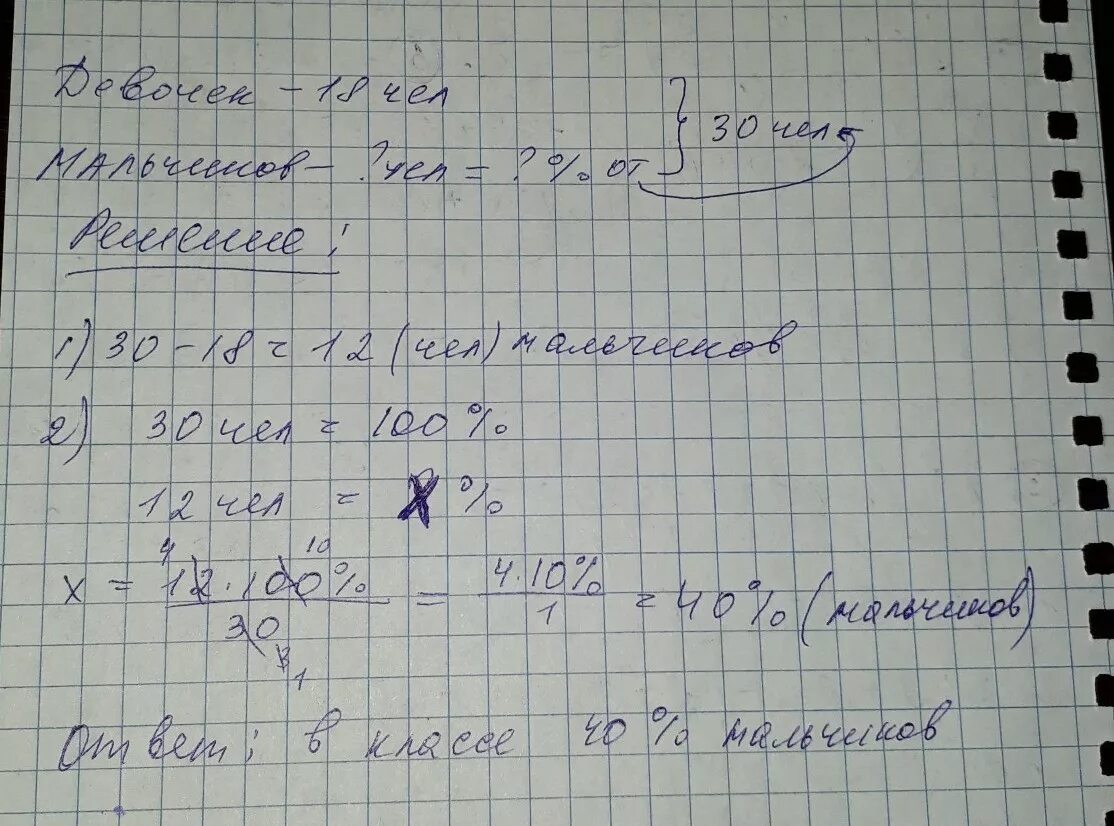 Девочек – 18 чел
30 чел
Мальчиков – ? чел = ? % от
Решение:
1) 30 – 18 = 12 (чел) мальчиков
2) 30 чел = 100 %
12 чел = X %
4 10
x = 12 · 100% / 30 = 4 · 10% / 1 = 40% (мальчиков)
3 1
Ответ: в классе 40 % мальчиков